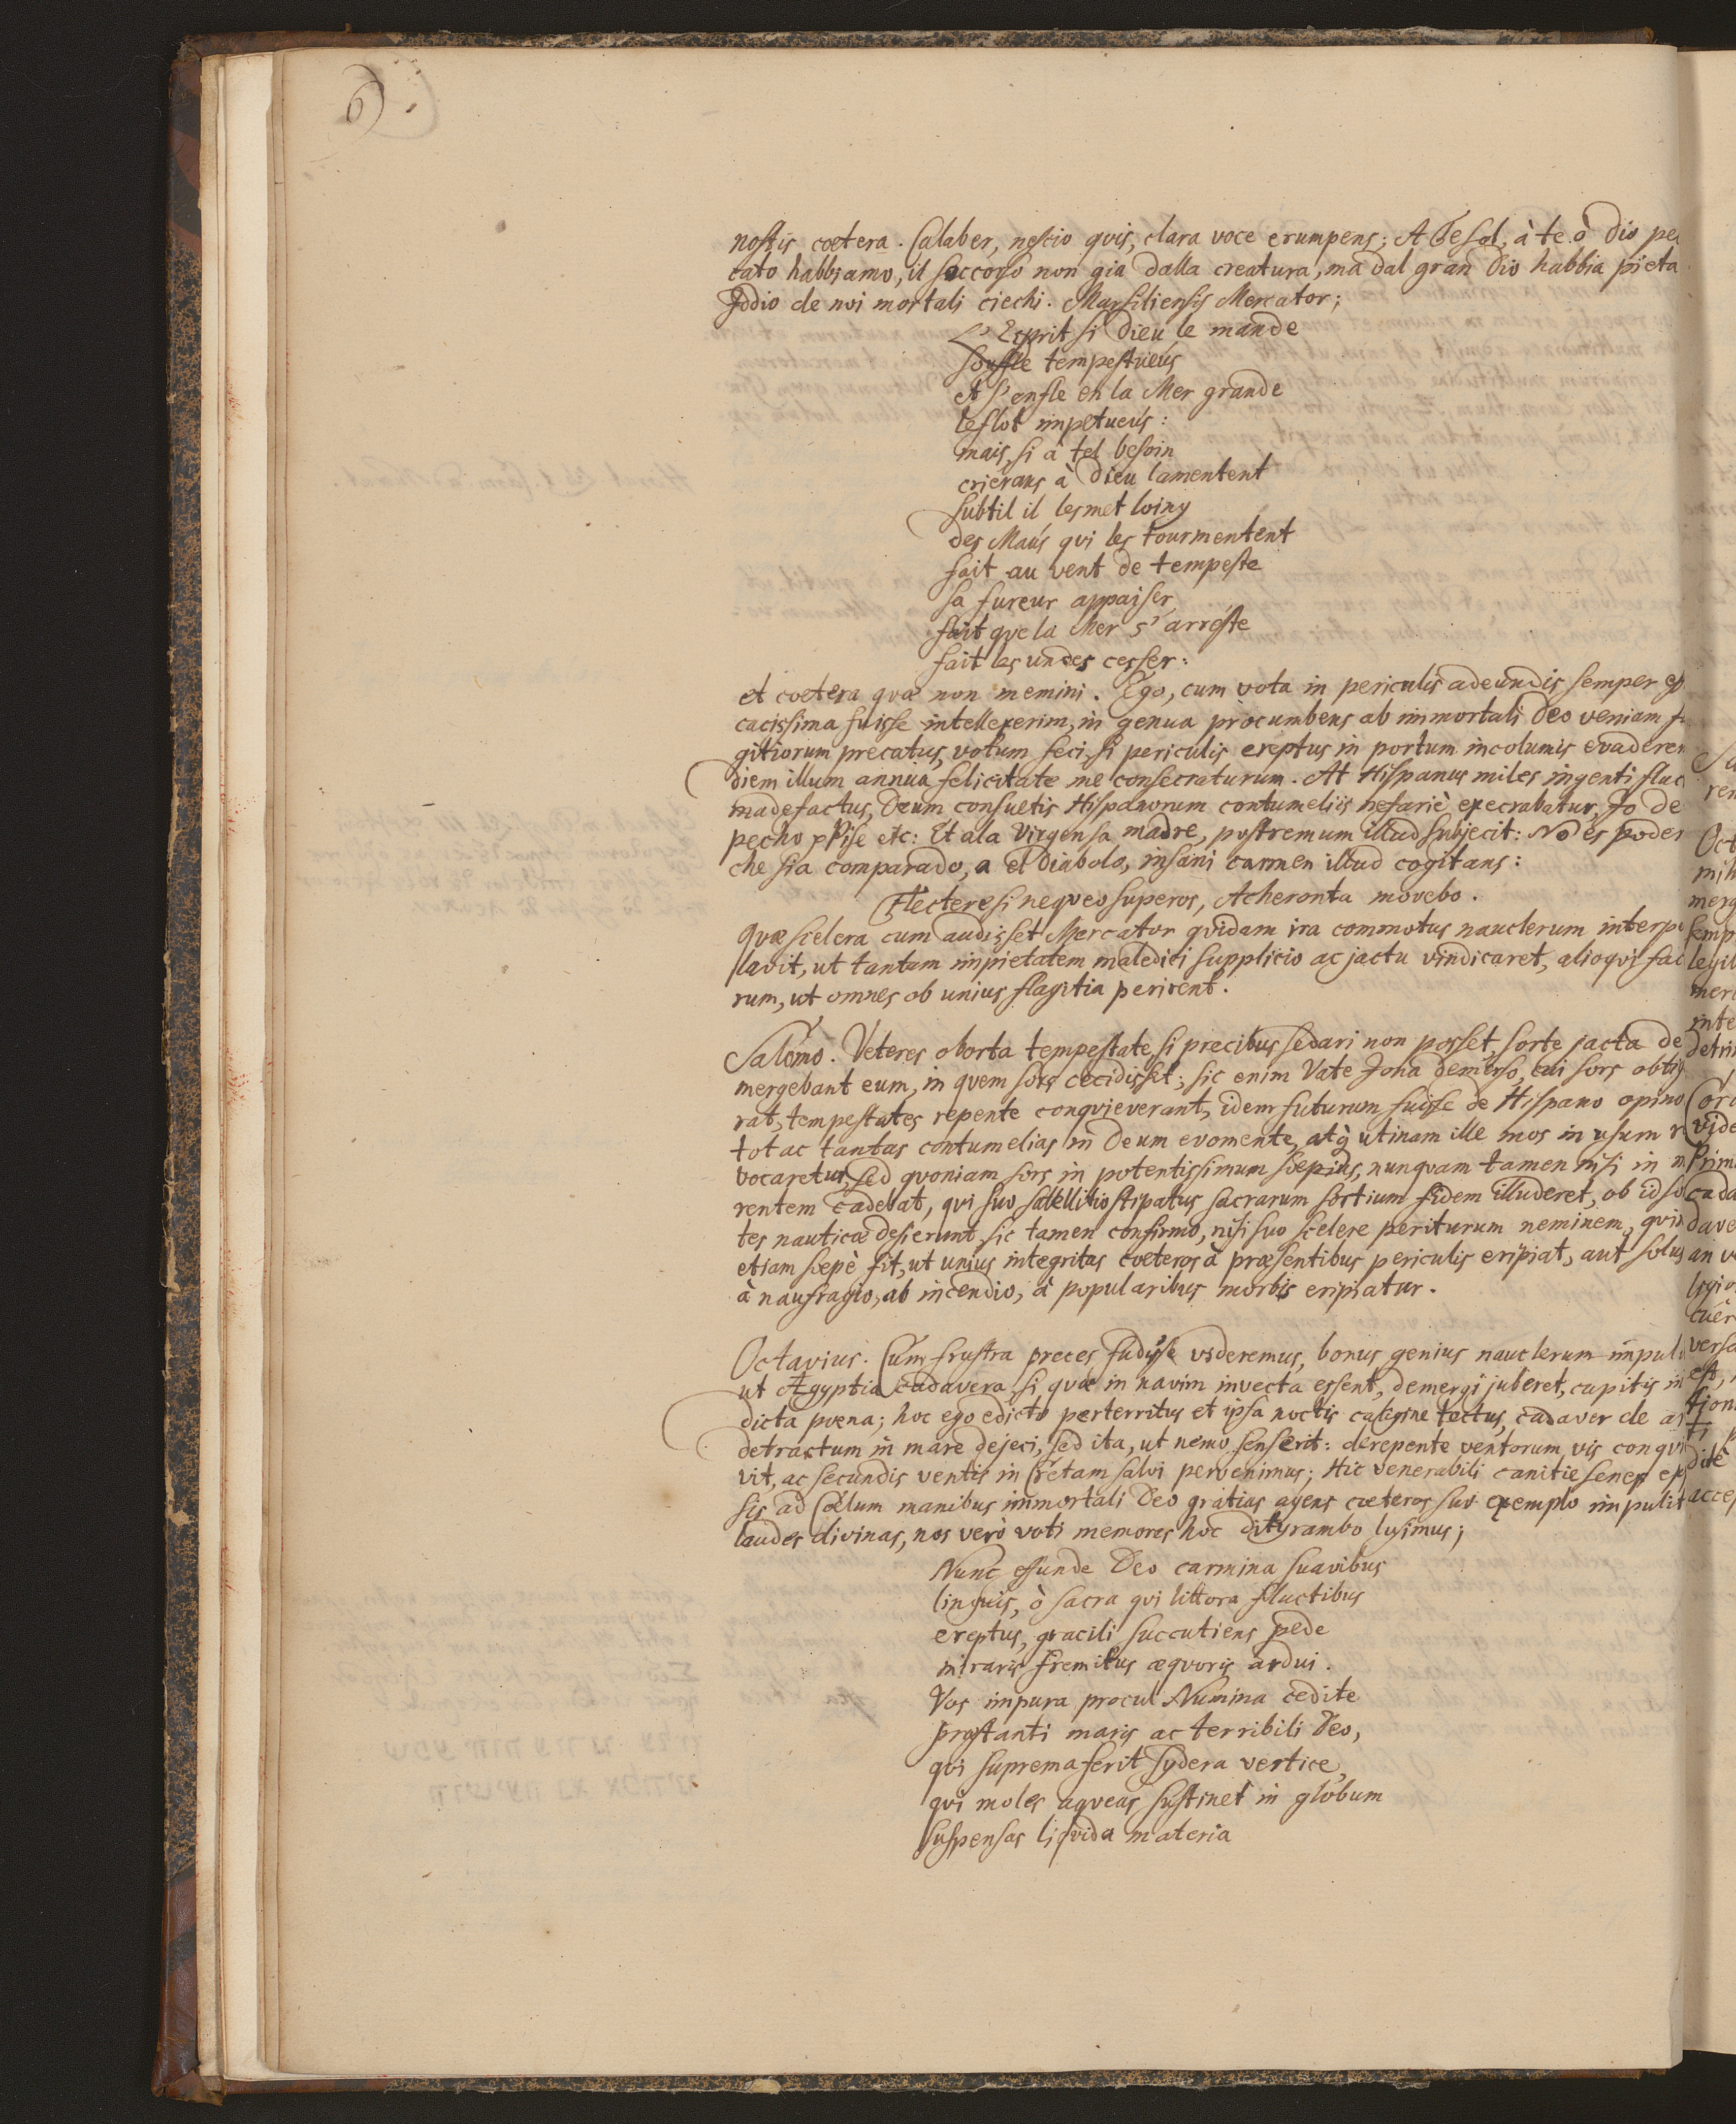 6)
nostis cœtera. Calaber, nescio quis, clara voce erumpens; A Te sol, à te ò Dio pec
cato habbiamo, il soccorso non gia dalla creatura, ma dal gran Dio habbia pieta
Iddio de noi mortali ciechi. Marsiliensis Mercator;
L'Esprit si Dieu le mande
souffle tempestueús
et s'enfle en la Mer grande
le flot impetueús:
mais, si à tel besoin
crierans à Dieu lamentent
subtil il les met loing
des Maús qui les tourmentent
fait au vent de tempeste
sa fureur appaiser,
fait que la Mer s'arreste
fait les undes cesser:
et cœtera quæ non memini. Ego, cum vota in periculis adeundis semper effi
cacissima fuisse intellexerim, in genua procumbens ab immortali Deo veniam fla
gitiorum precatus, votum feci, si periculis ereptus in portum incolumis evaderem
diem illum annua felicitate me consecraturum. At Hispanus miles ingenti fluc
madefactus, Deum consuetis Hispanorum contumeliis nefariè execrabatur, Io de
pecho Pise etc: Et a la Virgen sa madre, postremum illud subjecit: No es poder
che sia comparado, a el Diabolo, insani carmen illud cogitans:
Flectere si nequeo superos, Acheronta movebo.
Quæ scelera cum audisset Mercator quidam ira commotus nauclerum interpe
lavit, ut tantam impietatem maledici supplicio ac jactu vindicaret, alioqui fac
rum, ut omnes ob unius flagitia perirent.
Salomo. Veteres oborta tempestate, si precibus sedari non posset, sorte jacta de
mergebant eum, in quem sors cecidisset; sic enim Vate Jona demerso, cui sors obtig
rat, tempestates repente conquieverant, idem futurum fuisse de Hispano opino
tot ac tantas contumelias in Deum evomente, atq utinam ille mos in usum r
vocaretur, sed quoniam sors in potentissimum sœpius, nunquam tamen nisi in m
rentem cadebat, qui suo satellitio stipatus sacrarum sortium fidem illuderet, ob id so
tes nauticæ desierunt, sic tamen confirmo, nisi suo scelere periturum neminem, quin
etiam sœpè fit, ut unius integritas cœteros à præsentibus periculis eripiat, aut solus
à naufragio, ab incendio, à popularibus morbis eripiatur.
Octavius. Cum frustra preces fudisse videremus, bonus genius nauclerum impuli
ut Ægyptia cadavera, si quæ in navim invecta essent, demergi juberet, capitis in
dicta pœna; hoc ego edicto perterritus et ipsa noctis caligine tectus, cadaver de ar
detractum in mare dejeci, sed ita, ut nemo senserit: derepente ventorum vis conqui
vit, ac secundis ventis in Cretam salvi pervenimus; Hic venerabili canitie senex ex
sis ad Cœlum manibus immortali Deo gratias agens cœteros suo exemplo impulit
laudes divinas, nos verò voti memores hoc dityrambo lusimus;
Nunc effunde Deo carmina suavibus
linguis, ò sacra qui littora fluctibus
ereptus, gracili succutiens pede
miraris fremitus æquoris ardui.
Vos impura procul Numina cedite
præstanti maris ac terribili Deo,
qui suprema ferit sydera vertice,
qui moles aqueas sustinet in globum
suspensas liquida materia